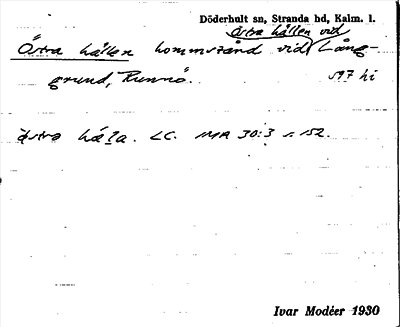 Döderhult sn, Stranda hd, Kalm. l.
Östra hållen vid
Östra hållen kommstånd vid Lång-
grund, Runnö. 597 hi
östra hála. LC. MA 30:3 s. 152.
Ivar Modéer 1930